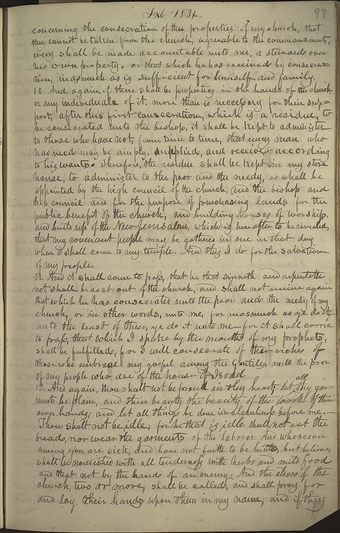 Feb 1831.
97
concerning the consecration of the properties of my church, that
they cannot be taken from the church, agreeable to my commandments,
every shall be made accountable unto me, a steward over
his own property, or that which he has received by consecra-
tion, inasmuch as is sufficient for himself and family.
10. And again, if there shall be properties in the hands of the church
or any individuals of it, more than is necessary for their sup-
port, after this first consecration, which is a residue, to
be consecrated unto the bishop, it shall be kept to administer
to those who have not, from time to time, that every man who
has need may be amply supplied, and receive according
to his wants. Therefore, the residue shall be kept in my store
house, to administer to the poor and the needy, as shall be
appointed by the high council of the church, and the bishop and
his council and for the purpose of purchasing lands for the
public benefit of the church, and building houses of worship,
and building up of the New-Jerusalem, which is hereafter to be revealed,
that my covenant people may be gathered in one in that day
when I shall come to my temple. And this I do for the salvation
of my people.
11. And it shall come to pass, that he that sinneth and repenteth
not shall be cast out of the church, and shall not receive again
that which he has consecrated unto the poor and the needy of my
church, or in other words, unto me, for inasmuch as ye do it
unto the least of these, ye do it unto me— for it shall come
to pass, that which I spake by the mouths of my prophets,
shall be fulfilled, for I will consecrate of the riches of
those who embrace my gospel among the Gentiles unto the poor
of my people who are of the house of Israel.
12. And again, thou shalt not be proud in thy heart, let all thy gar-
ments be plain, and their beauty the beauty of the work of thine
own hands; and let all things be done in cleanliness before me.—
Thou shalt not be idle, for he that is idle shall not eat the
bread, nor wear the garments of the laborer. And whosoever
among you are sick, and have not faith to be healed, but believe,
shall be nourished with all tenderness with herbs and mild food
and that not by the hands of an enemy. And the elders of the
church, two or more, shall be called, and shall pray for
and lay their hands upon them in my name, and if they